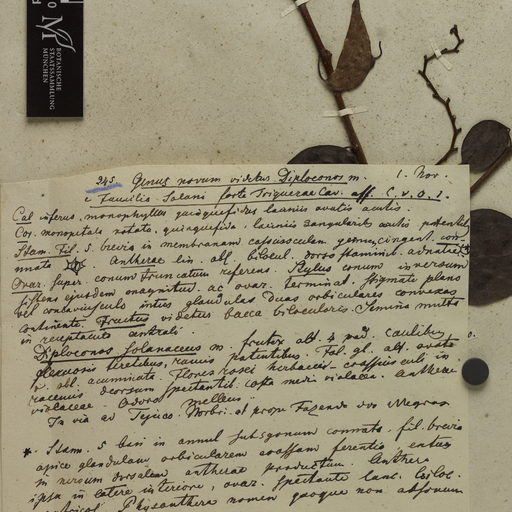 BOTANISCHE
STAATSSAMMLUNG
MÜNCHEN
M
345. Genus novum videtur Diploconos m. 1. Nov.
e Familia Solani forte Triguerae Cav. aff. C. V. O. 1.
Cal inferus, monophyllus quinquefidus laciniis ovatis acutis.
Cor. monopetala rotata, quinquefida, laciniis acutis
Stam. Fil. 5. brevia in membranam germen cingent.
nnata Antherae lin. obl. bilocul. dorso
Ovar. super. conum truncatum referens. Stylus conum inversum
ejusdem magnitud. ac ovar. terminat. Stigmate plano
vel concaviusculo intus glandulas duas orbiculares convexas
continente. Fructus videtur bacca bilocularis. Semina multa
in receptaculo centrali
Diploconos Solanaceus m. frutex alt. 4 ped. caulibus
flexuosis teretibus, ramis patentibus. Fol. gl. alt. ovata
v. obl. acuminata. Flores rosei in
racemis deorsum spectantib. costa media violacea. Antherae
violaceae. Odore melleus
In via ad Tejuco. Morbi. et prope Fazenda dos Negros
* Stam. 5 basi in annul. connata. fil. brevia
apice glandulam orbicularem crassam ferentia, entus
in nervum dorsalem antherae productum. Anthera
ipsa in latere interiore, ovar. spectante lanc. biloc.
Physanthera nomen quoque non absonum